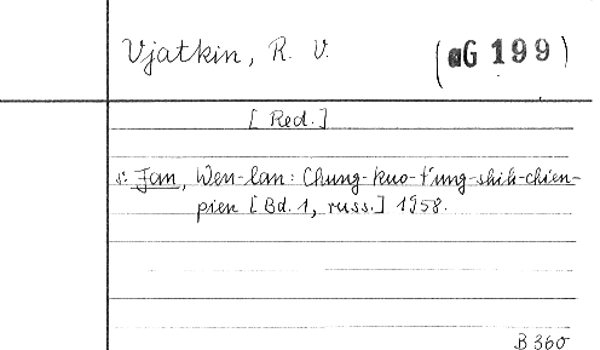 Vjatkin, R. V. (aG 199)
[Red.]
s. Fan, Wen-lan: Chung-kuo-t'ung-shih-chien-
pien [Bd. 1, russ.] 1958.
B 360